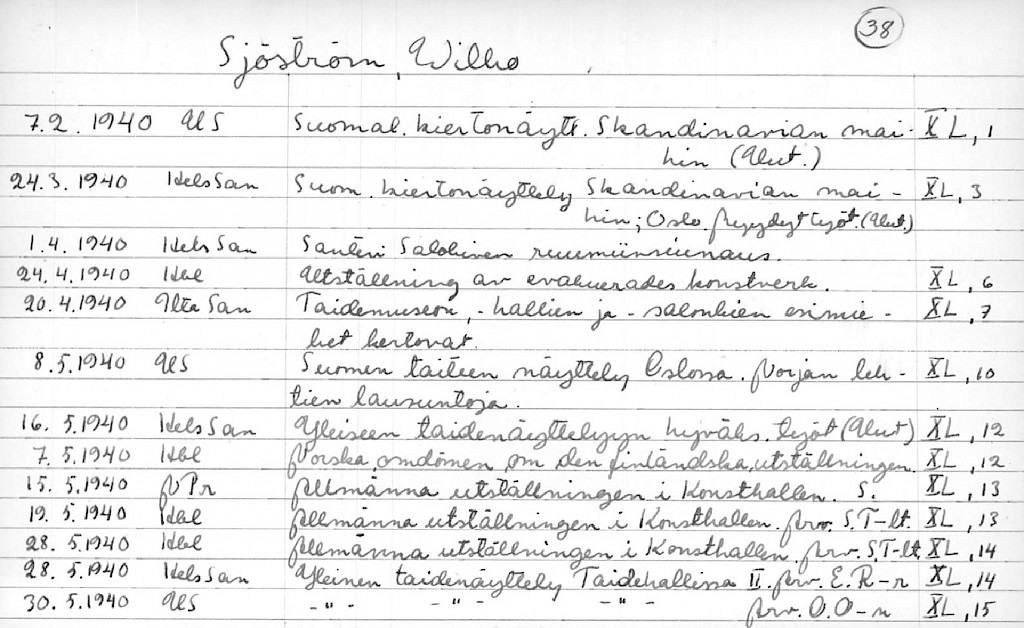 38
Sjöström, Wilho
7.2. 1940 US Suomal. kiertonäytt. Skandinavian mai- XL, 1
hin (Uut.)
24.3. 1940 Hels San Suom. kiertonäyttely Skandinavian mai- XL, 3
hin; Oslo. Myydyt työt. (Uut.)
1.4. 1940 Hels San Santeri Salokiven ruumiinsiunaus.
24.4.1940 Hbl Utställning av evakuerades konstverk. XL, 6
20.4.1940 Ilta San Taidemuseon, -hallien ja -salonkien esimie- XL, 7
het kertovat.
8.5.1940 US Suomen taiteen näyttely Oslossa. Norjan leh- XL, 10
tien lausuntoja.
16. 5.1940 Hels San Yleiseen taidenäyttelyyn hyväks. työt (Uut) XL, 12
7. 5.1940 Hbl Norska omdömen om den finländska utställningen. XL, 12
15. 5.1940 NPr Allmänna utställningen i Konsthallen. S. XL, 13
19. 5.1940 Hbl Allmänna utställningen i Konsthallen. Arv. S.T-lt. XL, 13
28. 5.1940 Hbl Allmänna utställningen i Konsthallen. Arv. S.T-lt. XL, 14
28. 5.1940 Hels San Yleinen taidenäyttely Taidehallissa II. Arv. E.R-r XL, 14
30. 5.1940 US -"- -"- -"- Arv. O.O-n XL, 15